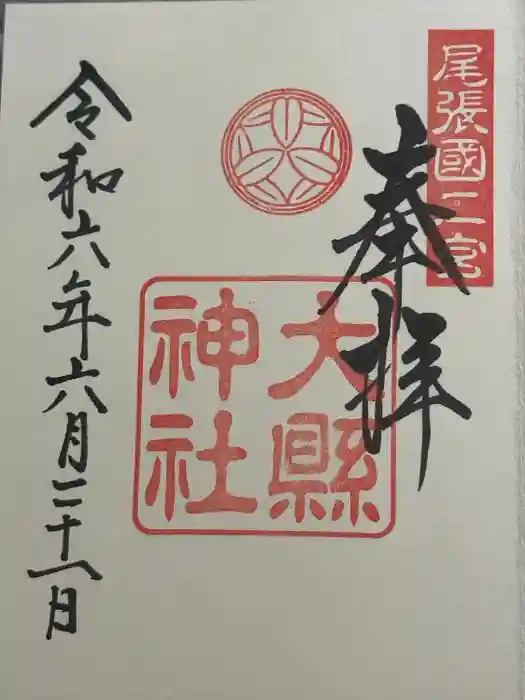 尾張國二宮
奉拝
大縣
神社
令和六年六月二十一日